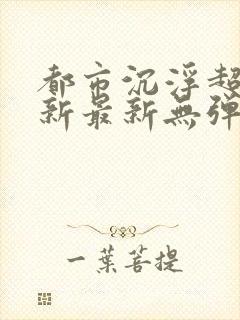 都市沉浮超
新最新無弹
一葉菩提